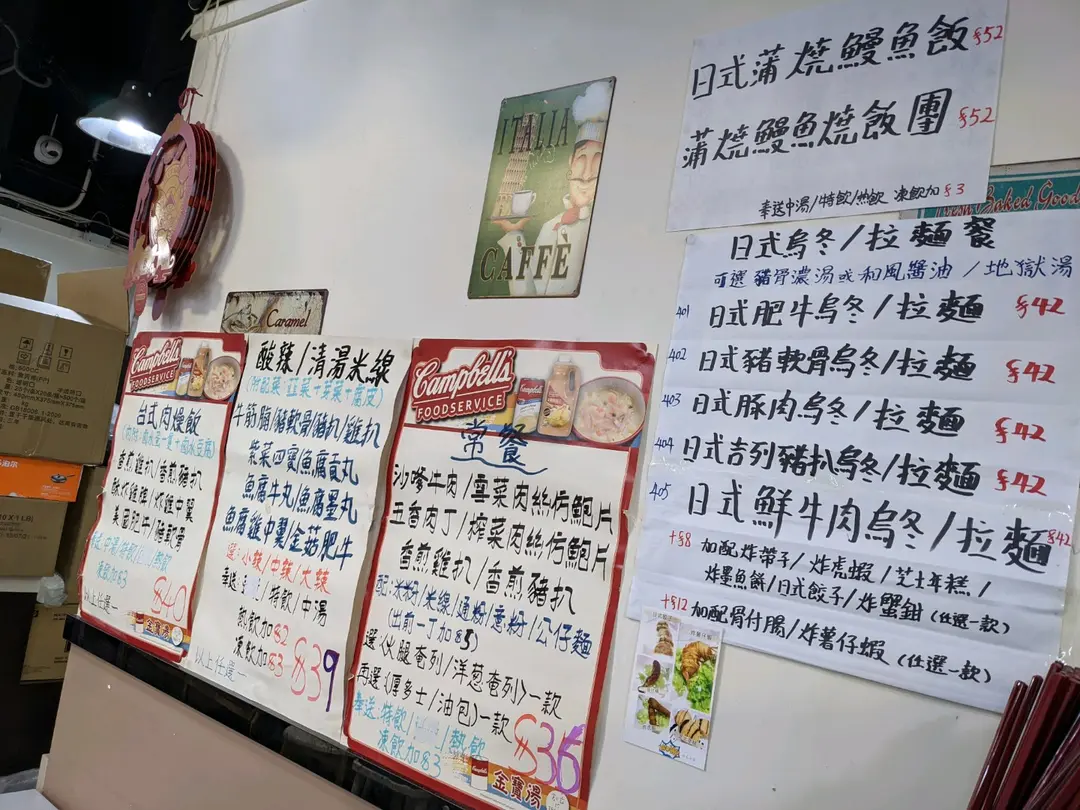 日式蒲燒鰻魚飯 $52
蒲燒鰻魚燒飯團 $52
奉送中湯/特飲/熱飲 凍飲加$3
ITALIA
CAFFÈ
Caramel
日式烏冬/拉麵餐
可選豬骨濃湯或和風醬油/地獄湯
401 日式肥牛烏冬/拉麵 $42
402 日式豬軟骨烏冬/拉麵 $42
403 日式豚肉烏冬/拉麵 $42
404 日式吉列豬扒烏冬/拉麵 $42
405 日式鮮牛肉烏冬/拉麵 $42
+$8 加配炸帶子/炸虎蝦/芝士年糕/
炸墨魚餅/日式餃子/炸蟹鉗(任選一款)
+$12 加配骨付腸/炸薯仔蝦(任選一款)
Campbell's
FOODSERVICE
台式肉燥飯
香煎雞扒/香煎豬扒
美國肥牛/
凍飲加$3
以上任選一
$40
金寶湯
酸辣/清湯米線
牛筋腩/豬軟骨/豬扒/雞扒
紫菜四寶/魚腐貢丸
魚腐牛丸/魚腐墨丸
魚腐雞中翼/金菇肥牛
選:小辣/中辣/大辣
奉送: /特飲/中湯
熱飲加$2
凍飲加$3
以上任選一
$39
Campbell's
FOODSERVICE
常餐
沙嗲牛肉/雪菜肉絲/仿鮑片
五香肉丁/榨菜肉絲/仿鮑片
香煎雞扒/香煎豬扒
配:米粉/米線/通粉/意粉/公仔麵
(出前一丁加$5)
選(火腿奄列/洋葱奄列)一款
再選(厚多士/油包)一款
奉送:特飲/ /熱飲
凍飲加$3
$36
金寶湯